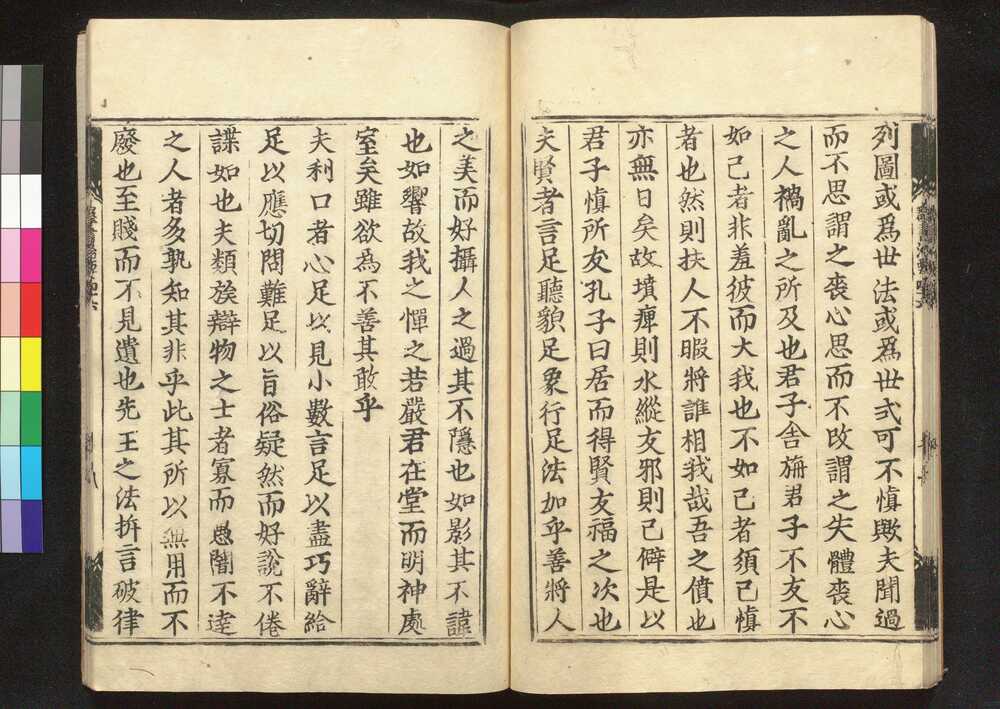 列圖或爲世法或爲世式可不愼歟夫聞過
而不思謂之喪心思而不改謂之失體喪心
之人禍亂之所及也君子舍旃君子不友不
如己者非羞彼而大我也不如己者須己愼
者也然則扶人不暇將誰相我哉吾之僨也
亦無日矣故墳痺則水縱友邪則己僻是以
君子愼所友孔子曰居而得賢友福之次也
夫賢者言足聽貌足象行足法加乎善將人
之美而好攝人之過其不隱也如影其不諱
也如響故我之憚之若嚴君在堂而明神處
室矣雖欲為不善其敢乎
夫利口者心足以見小數言足以盡巧辭給
足以應切問難足以旨俗疑然而好說不倦
諜如也夫類族辯物之士者寡而愚闇不逹
之人者多孰知其非乎此其所以無用而不
廢也至賤而不見遺也先王之法㭊言破律